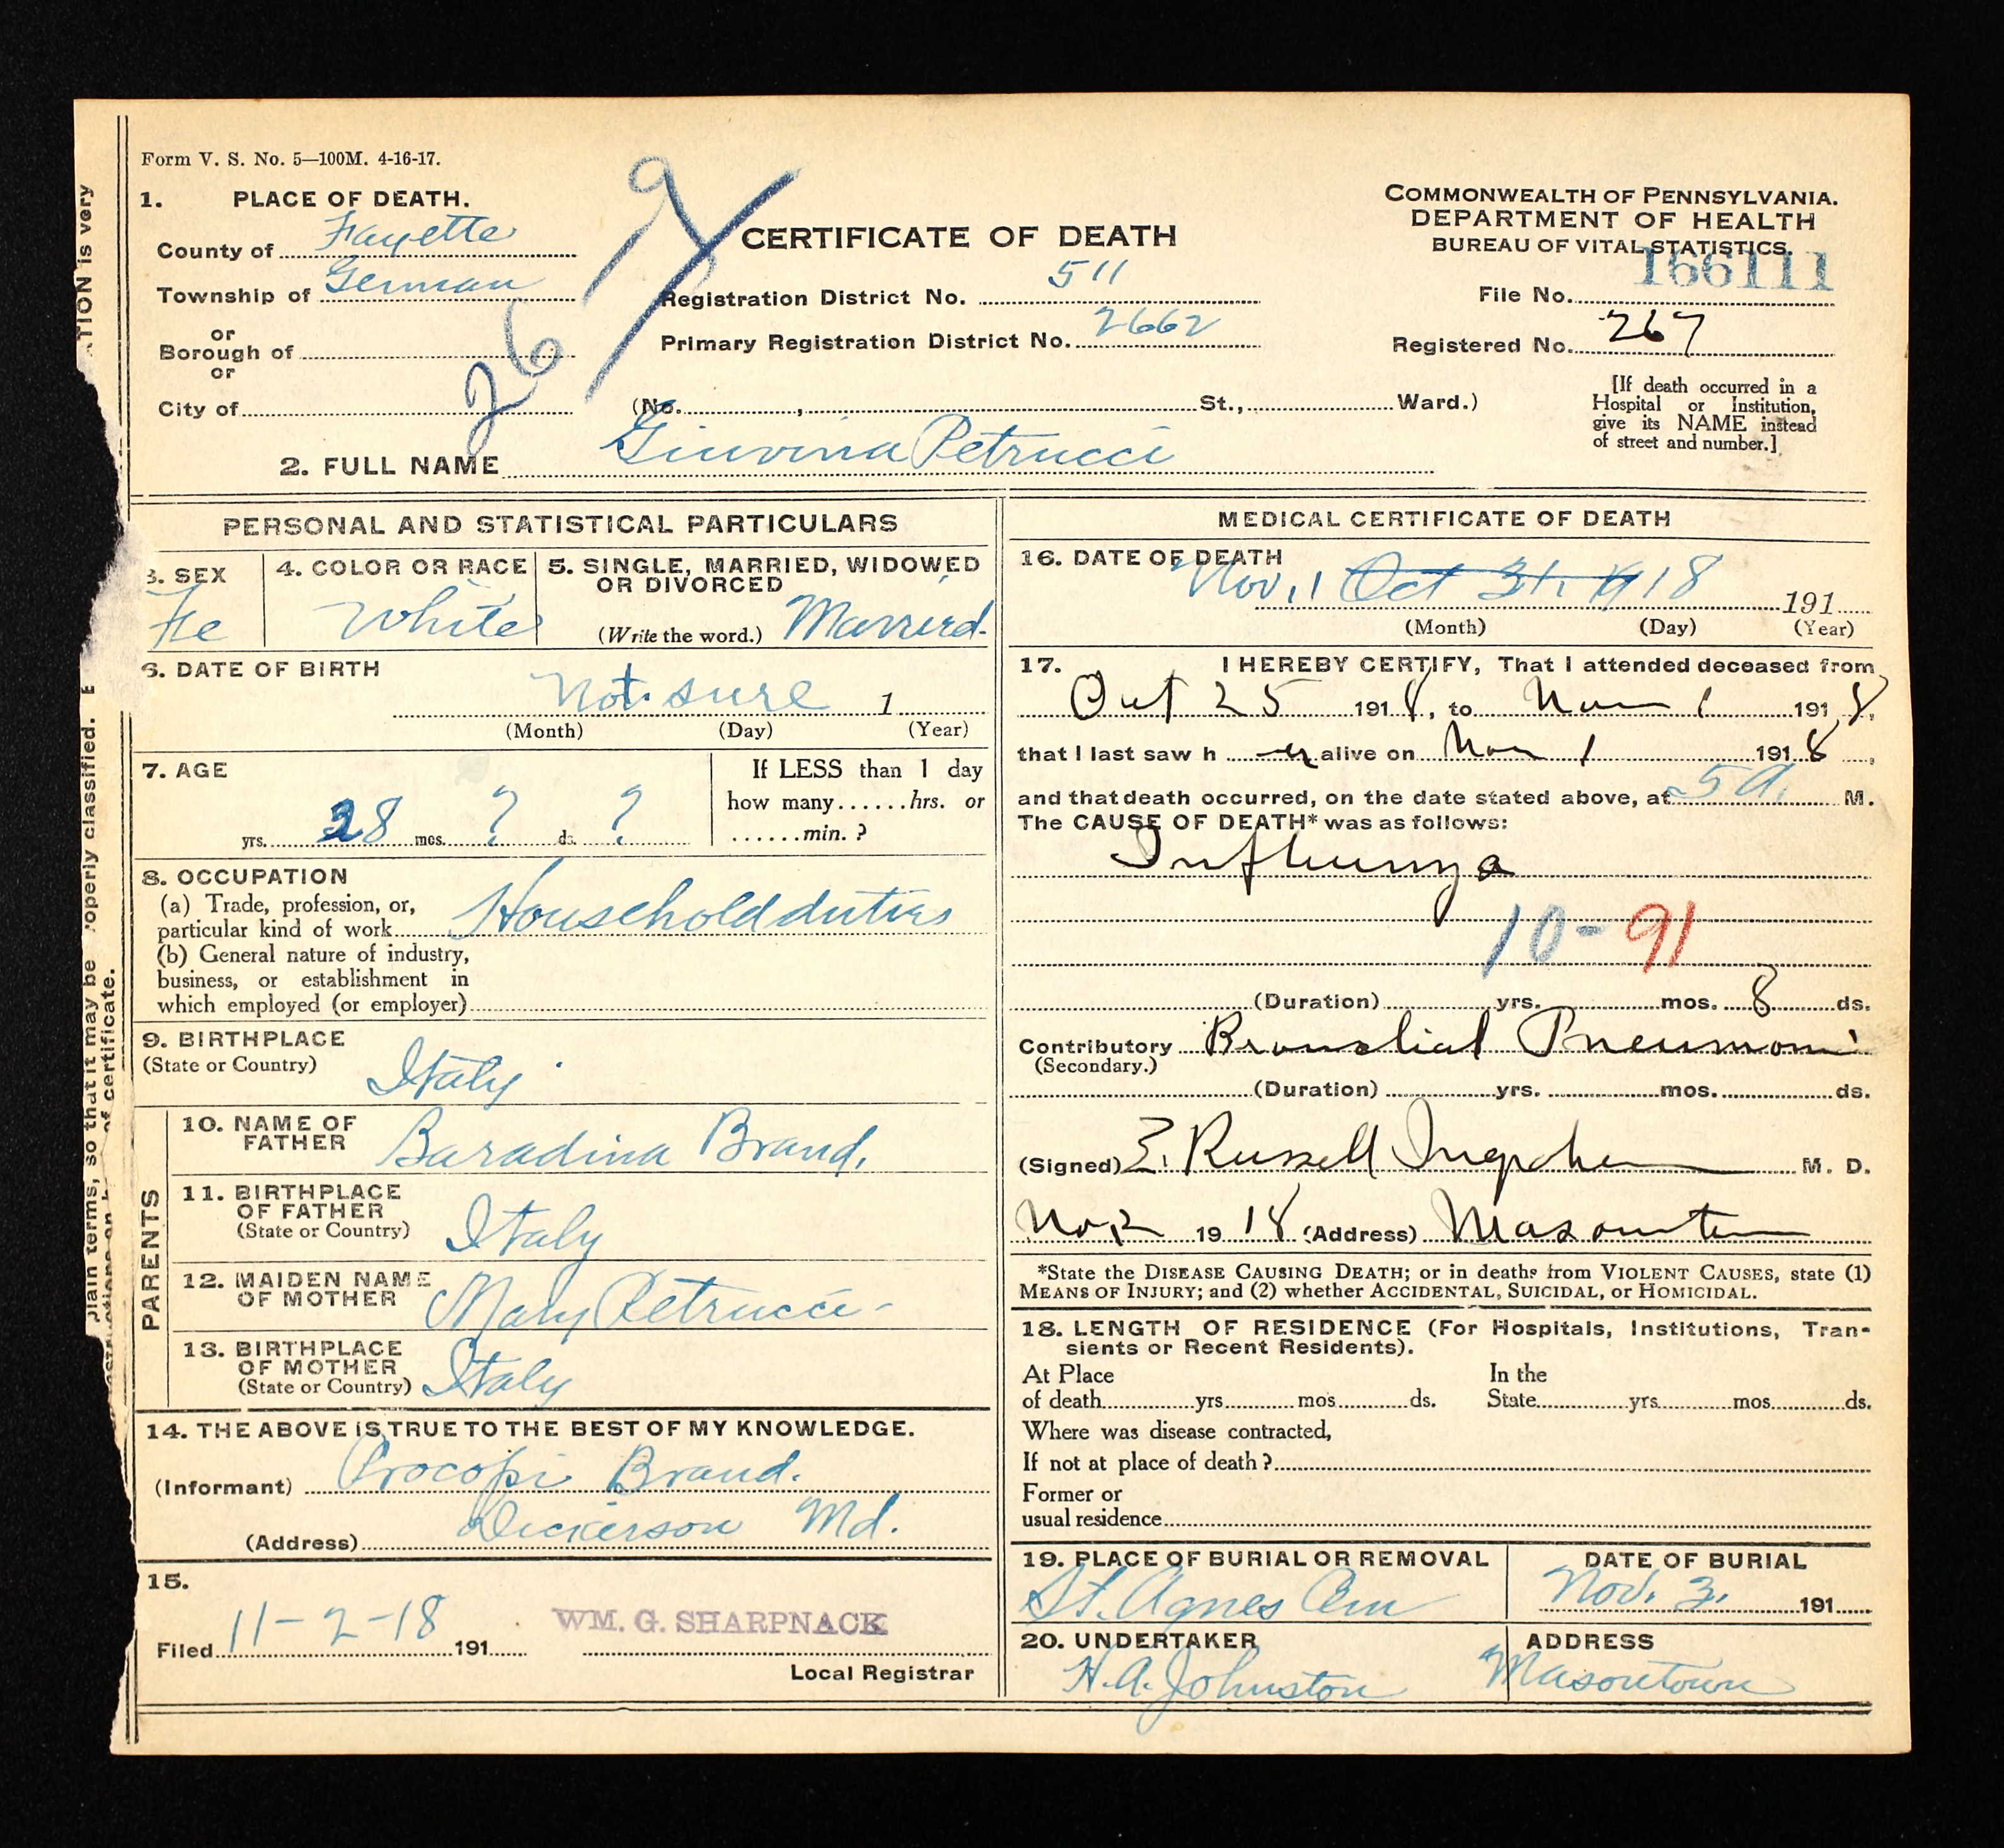 Form V. S. No. 5—100M. 4-16-17.
1. PLACE OF DEATH.
County of Fayette
Township of German
or
Borough of
or
City of
26
9
CERTIFICATE OF DEATH
Registration District No. 511
Primary Registration District No. 2662
(No. , St., Ward.)
COMMONWEALTH OF PENNSYLVANIA.
DEPARTMENT OF HEALTH
BUREAU OF VITAL STATISTICS.
166111
File No.
Registered No. 267
[If death occurred in a
Hospital or Institution,
give its NAME instead
of street and number.]
2. FULL NAME Giuvina Petrucci
PERSONAL AND STATISTICAL PARTICULARS
3. SEX
Fe
4. COLOR OR RACE
White
5. SINGLE, MARRIED, WIDOWED
OR DIVORCED
(Write the word.) Marrierd.
6. DATE OF BIRTH
Not sure 1
(Month) (Day) (Year)
7. AGE
yrs. 28 mos. ? ds. ?
If LESS than 1 day
how many......hrs. or
......min. ?
8. OCCUPATION
(a) Trade, profession, or,
particular kind of work Household duties
(b) General nature of industry,
business, or establishment in
which employed (or employer)
9. BIRTHPLACE
(State or Country)
Italy
PARENTS
10. NAME OF
FATHER
Baradina Brand.
11. BIRTHPLACE
OF FATHER
(State or Country)
Italy
12. MAIDEN NAME
OF MOTHER
Mary Petrucci-
13. BIRTHPLACE
OF MOTHER
(State or Country) Italy
14. THE ABOVE IS TRUE TO THE BEST OF MY KNOWLEDGE.
(Informant) Procopi Brand.
(Address) Dickerson Md.
15.
Filed 11-2-18 191
WM. G. SHARPNACK
Local Registrar
MEDICAL CERTIFICATE OF DEATH
16. DATE OF DEATH
Nov. 1 Oct 31. 1918 191
(Month) (Day) (Year)
17. I HEREBY CERTIFY, That I attended deceased from
Oct 25 1918, to Nov 1 1918,
that I last saw h er alive on Nov 1 1918,
and that death occurred, on the date stated above, at 5 A. M.
The CAUSE OF DEATH* was as follows:
Influenza
10-91
(Duration) yrs. mos. 8 ds.
Contributory Bronchial Pneumoni
(Secondary.)
(Duration) yrs. mos. ds.
(Signed) E. Russell M. D.
Nov 2 1918 (Address) Masontown
*State the DISEASE CAUSING DEATH; or in deaths from VIOLENT CAUSES, state (1)
MEANS OF INJURY; and (2) whether ACCIDENTAL, SUICIDAL, or HOMICIDAL.
18. LENGTH OF RESIDENCE (For Hospitals, Institutions, Tran-
sients or Recent Residents).
At Place
of death yrs. mos. ds.
In the
State yrs. mos. ds.
Where was disease contracted,
If not at place of death?
Former or
usual residence
19. PLACE OF BURIAL OR REMOVAL
St. Agnes Cem
DATE OF BURIAL
Nov. 3. 191
20. UNDERTAKER
H. A. Johnston
ADDRESS
Masontown
ATION is very
plain terms, so that it may be properly classified. E
of certificate.